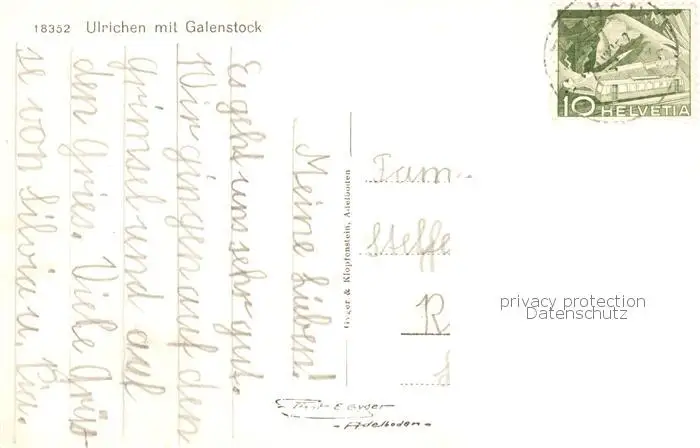 18352 Ulrichen mit Galenstock
Meine Lieben!
Es geht uns sehr gut.
Wir gingen auf den
Grimsel und auf
den Gries. Viele Grüs-
se von Silvia u. Pia.
Gyger & Klopfenstein, Adelboden
Fam.
Steffe
R
HELVETIA
10
privacy protection
Datenschutz
Phot E Gyger
- Adelboden -